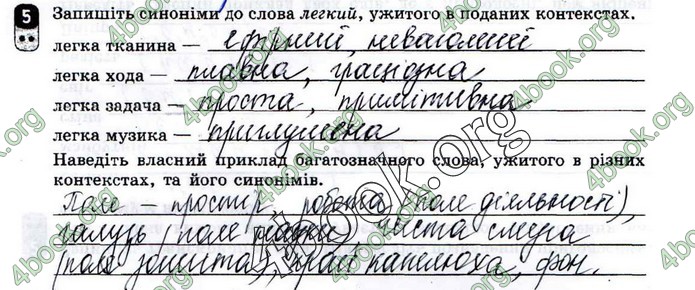 5 Запишіть синоніми до слова легкий, ужитого в поданих контекстах.
легка тканина — ефірний, невагомий
легка хода — плавна, граціозна
легка задача — проста, примітивна
легка музика — приглушена
Наведіть власний приклад багатозначного слова, ужитого в різних
контекстах, та його синонімів.
Поле — простір, робота (поле діяльності),
галузь (поле науки), чиста смуга
(поле зошита), край капелюха, фон.
4book.org